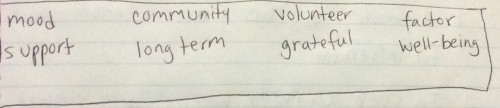 mood community volunteer factor
support long term grateful well-being